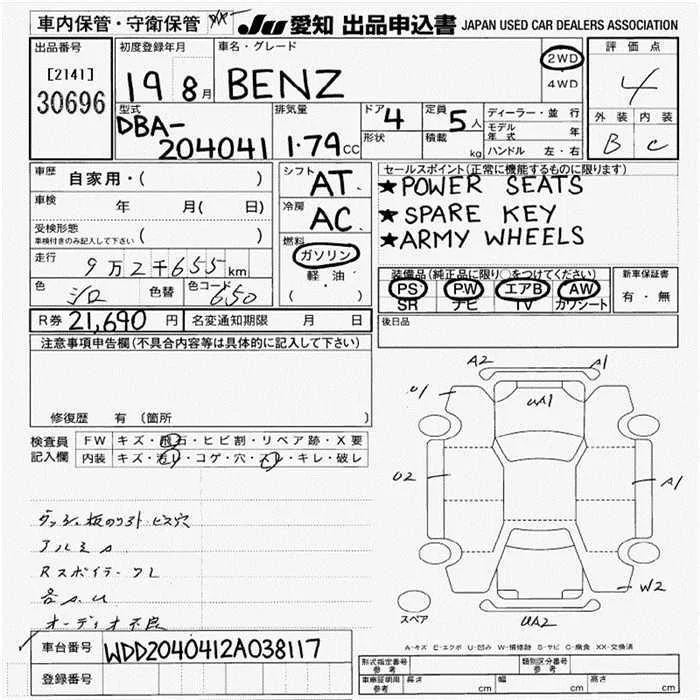 車内保管・守衛保管
JU 愛知 出品申込書 JAPAN USED CAR DEALERS ASSOCIATION
出品番号
[2141]
30696
初度登録年月
19 8月
車名・グレード
BENZ
2WD
4WD
評価点
4
外装 内装
B C
型式
DBA-
204041
排気量
1.79 CC
ドア 4
形状
定員 5人
積載 kg
ディーラー・並行
モデル年式 年
ハンドル 左・右
車歴 自家用・( )
車検 年 月( 日)
受検形態
車検付きのみ記入して下さい ( )
走行 9万2千655km
色 シロ 色替 色コード 650
シフト AT
冷房 AC
燃料
ガソリン
軽油
( ・ )
セールスポイント(正常に機能するものに限ります)
★POWER SEATS
★SPARE KEY
★ARMY WHEELS
装備品(純正品に限り○をつけてください)
PS PW エアB AW
SR ナビ TV カワシート
新車保証書
有・無
R券 21,690 円 名変通知期限 月 日
後日品
注意事項申告欄(不具合内容等は具体的に記入して下さい)
修復歴 有 (箇所 )
検査員
記入欄
FW キズ・飛石・ヒビ割・リペア跡・X要
内装 キズ・汚レ・コゲ・穴・スレ・キレ・破レ
ダッシュ板のり外 ビス穴
アルミA
Rスポイラーワレ
各A.U
オーディオ不良
A2 A1
U1 UA1
U2 A1
W2
UA2
スペア
A-キズ E-エクボ U-凹み W-補修跡 S-サビ C-腐食 XX-交換済
車台番号 WDD2040412A038117
登録番号
形式指定番号
参考
類別区分番号
参考
車庫証明用
参考
長さ cm 幅 cm 高さ cm